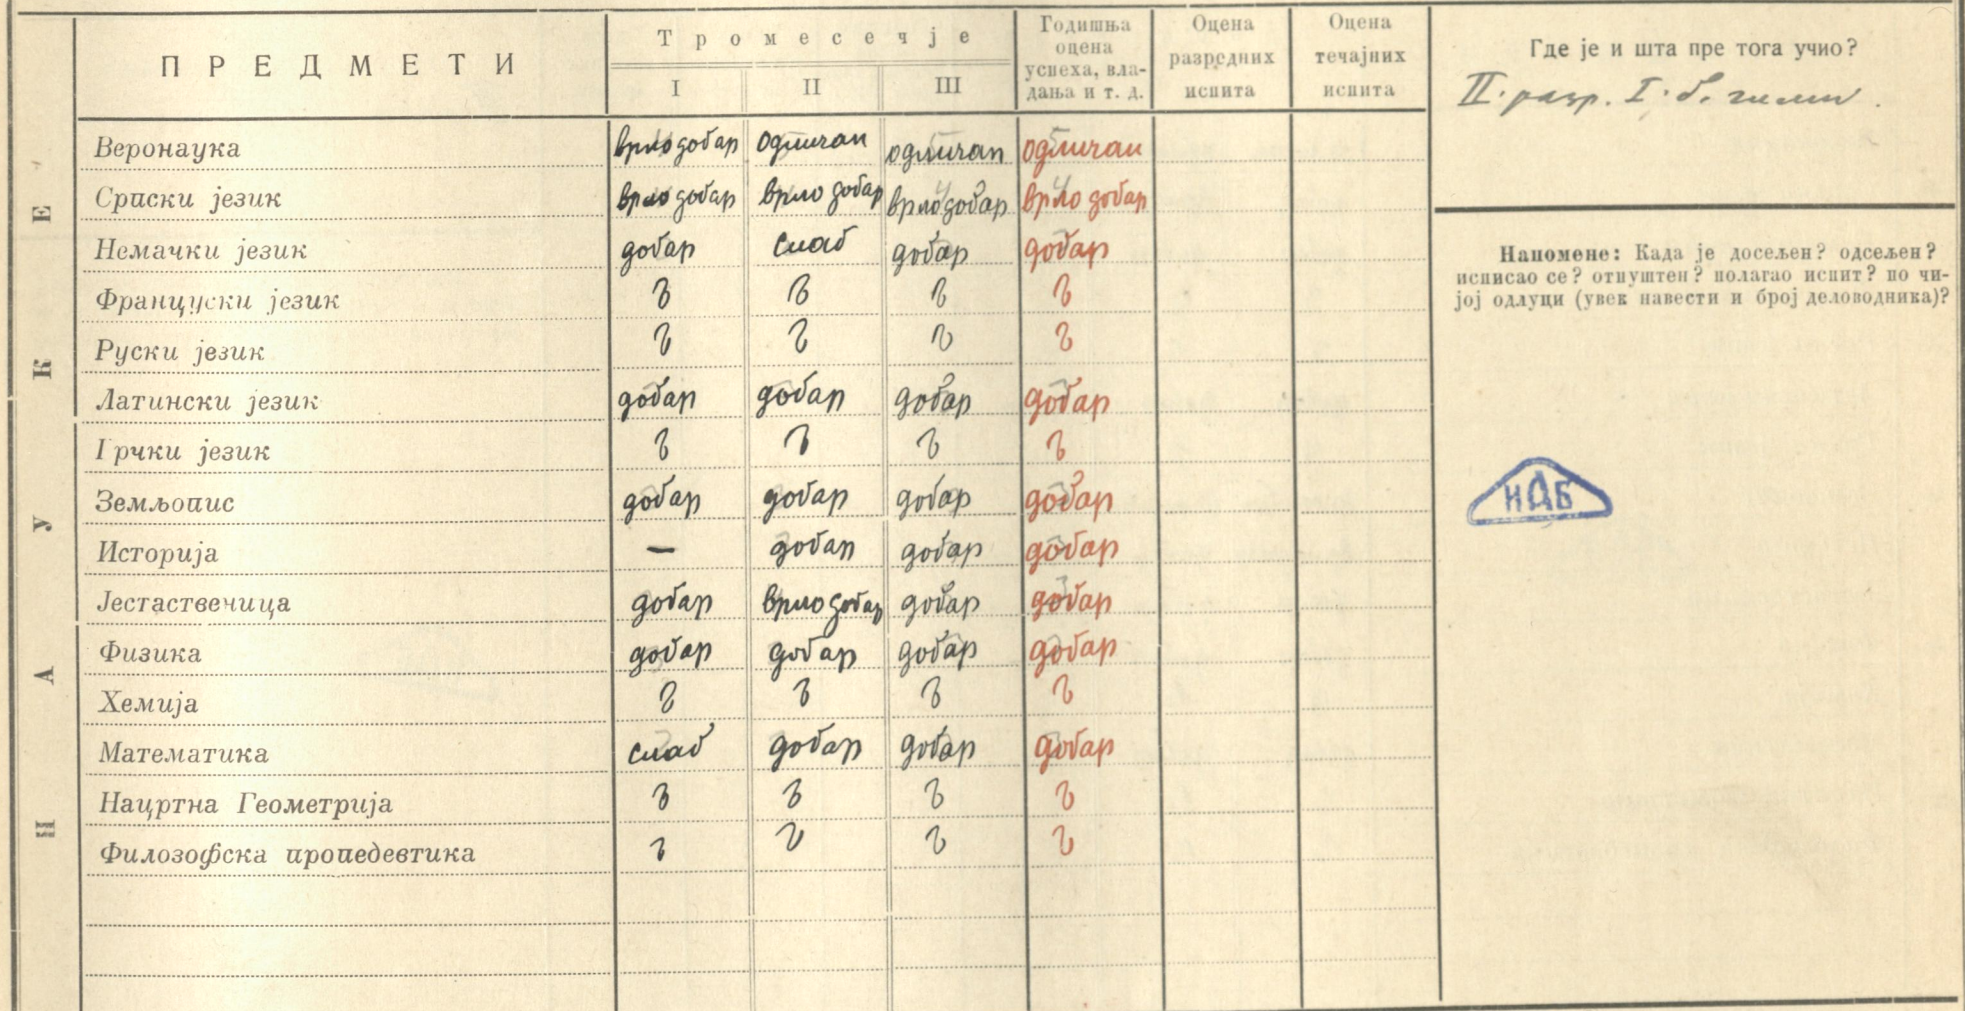 НАУКЕ
ПРЕДМЕТИ
Тромесечје
I II III
Годишња оцена успеха, владања и т. д.
Оцена разредних испита
Оцена течајних испита
Веронаука врло добар одличан одличан одличан
Српски језик врло добар врло добар врло добар врло добар
Немачки језик добар слаб добар добар
Француски језик
Руски језик
Латински језик добар добар добар добар
Грчки језик
Земљопис добар добар добар добар
Историја — добар добар добар
Јестаственица добар врло добар добар добар
Физика добар добар добар добар
Хемија
Математика слаб добар добар добар
Нацртна Геометрија
Филозофска пропедевтика
Где је и шта пре тога учио?
II. разр. I. б. гимн.
Напомене: Када је досељен? одсељен?
исписао се? отпуштен? полагао испит? по чи-
јој одлуци (увек навести и број деловодника)?
ИАБ